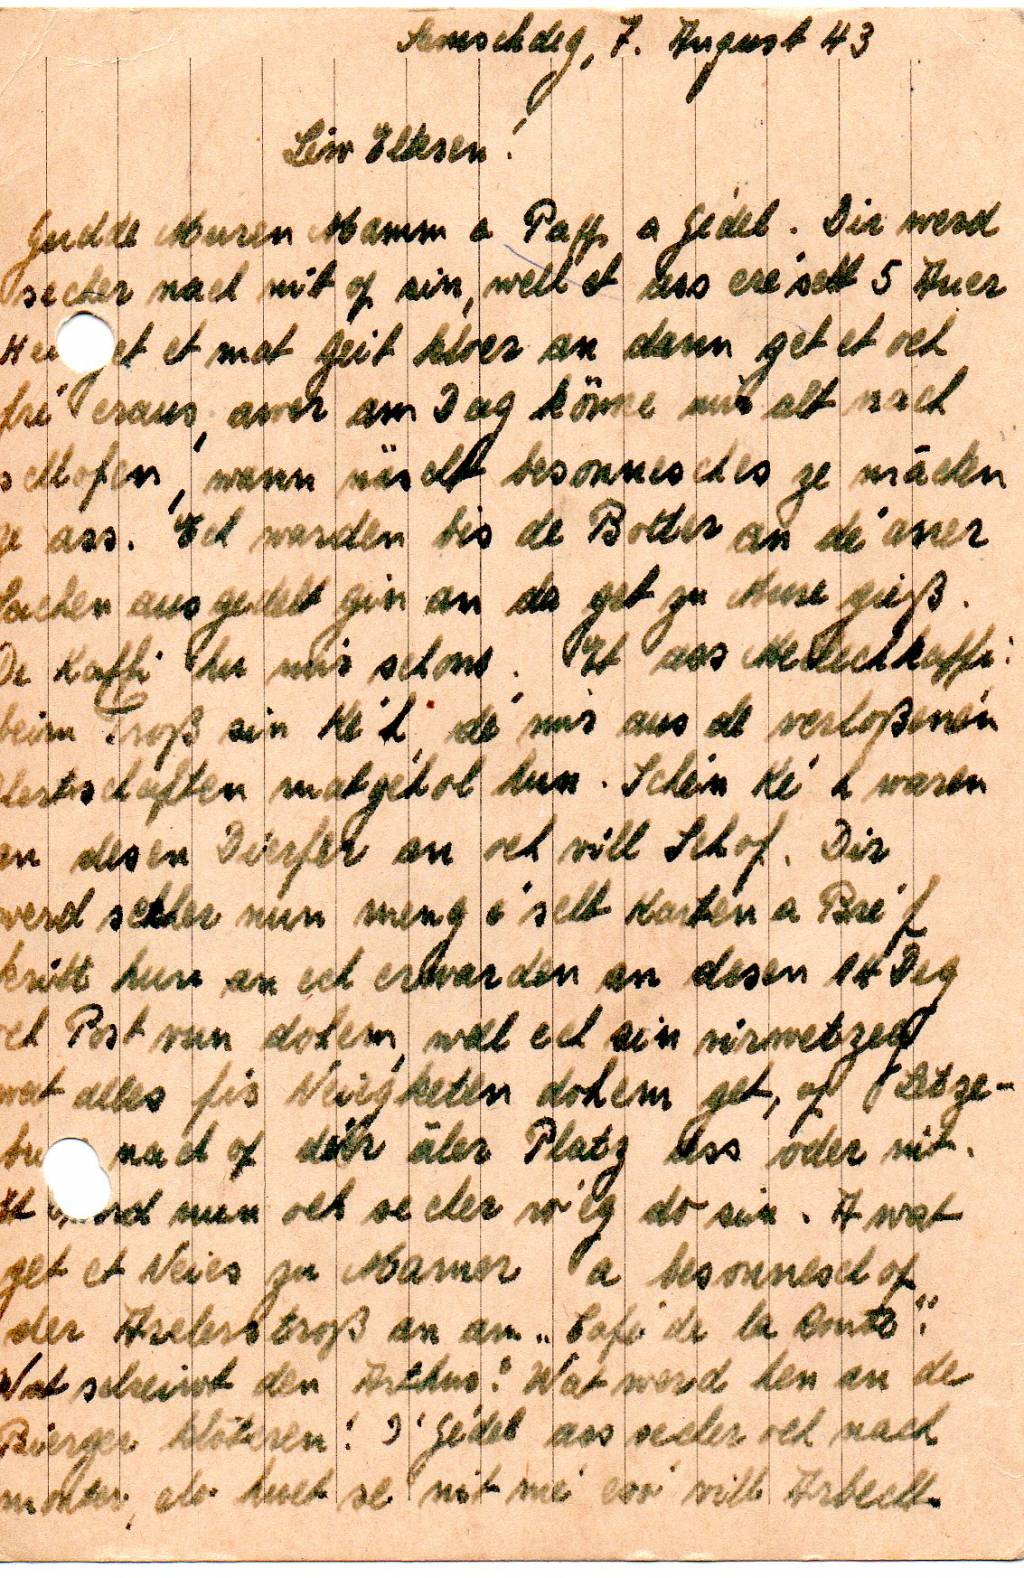 Samschdeg, 7. August 43
Leiw Elteren!
Gudde Muren Mamm a Papp a Gédel. Dir werd
secher nach nit op sin, well et ass eréischt 5 Auer
et et mat Zeit kloer an dann get et och
fréi eraus, awer am Dag könne mir alt nach
schlofen, wann näscht besonnesches ze mächen
ass. Ech warden bis de Botter an dé aner
Sachen ausgedelt gin an da get zu Mure giess.
De Kaffi hu mir schons. Et ass Mellechkaffi:
beim Troß sin Ké h, dé mir aus de verloßenen
Uertschaften matgehol hun. Schéin Ké h waren
an desen Dierfer an och vill Schof. Dir
werd secher nun meng é selt Karten a Bréf
kritt hun an ech erwarden an desen 14 Deg
och Post vun dohem, wäl ech sin virwetzeg
wat alles fir Neiegketen dohem get, op Letze-
nach op där aler Platz ass oder nit.
nun och secher ro eg do sin. A wat
get et Neies zu Mamer a besonnesch op
der Arelerstroß an am „Café de la Poste“?
Wat schreiwt den Arthur? Wat werd hen an de
Bierger klöteren! D'Gédel ass secher och nach
monter, elo huet se nit mé eso vill Arbecht.